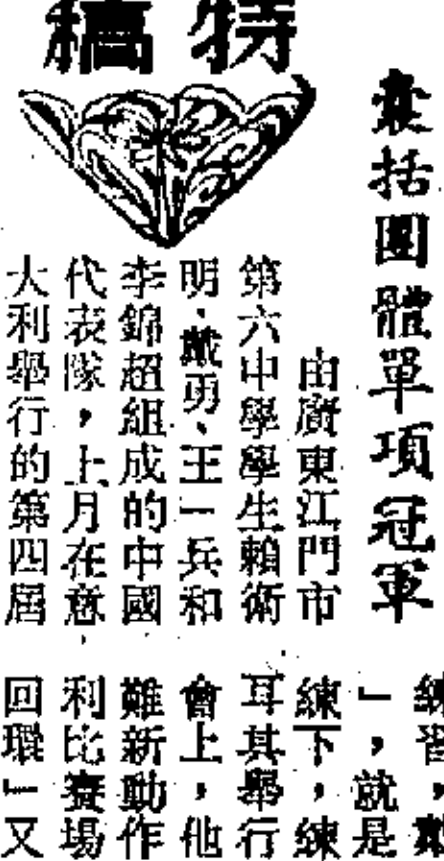 特稿
囊括團體單項冠軍
由廣東江門市
第六中學學生賴術
明、戴勇、王一兵和
李錦超組成的中國
代表隊，上月在意
大利舉行的第四屆
練習，
」，就是
練下，練
耳其舉行
會上，他
難新動作
利比賽場
回環」又